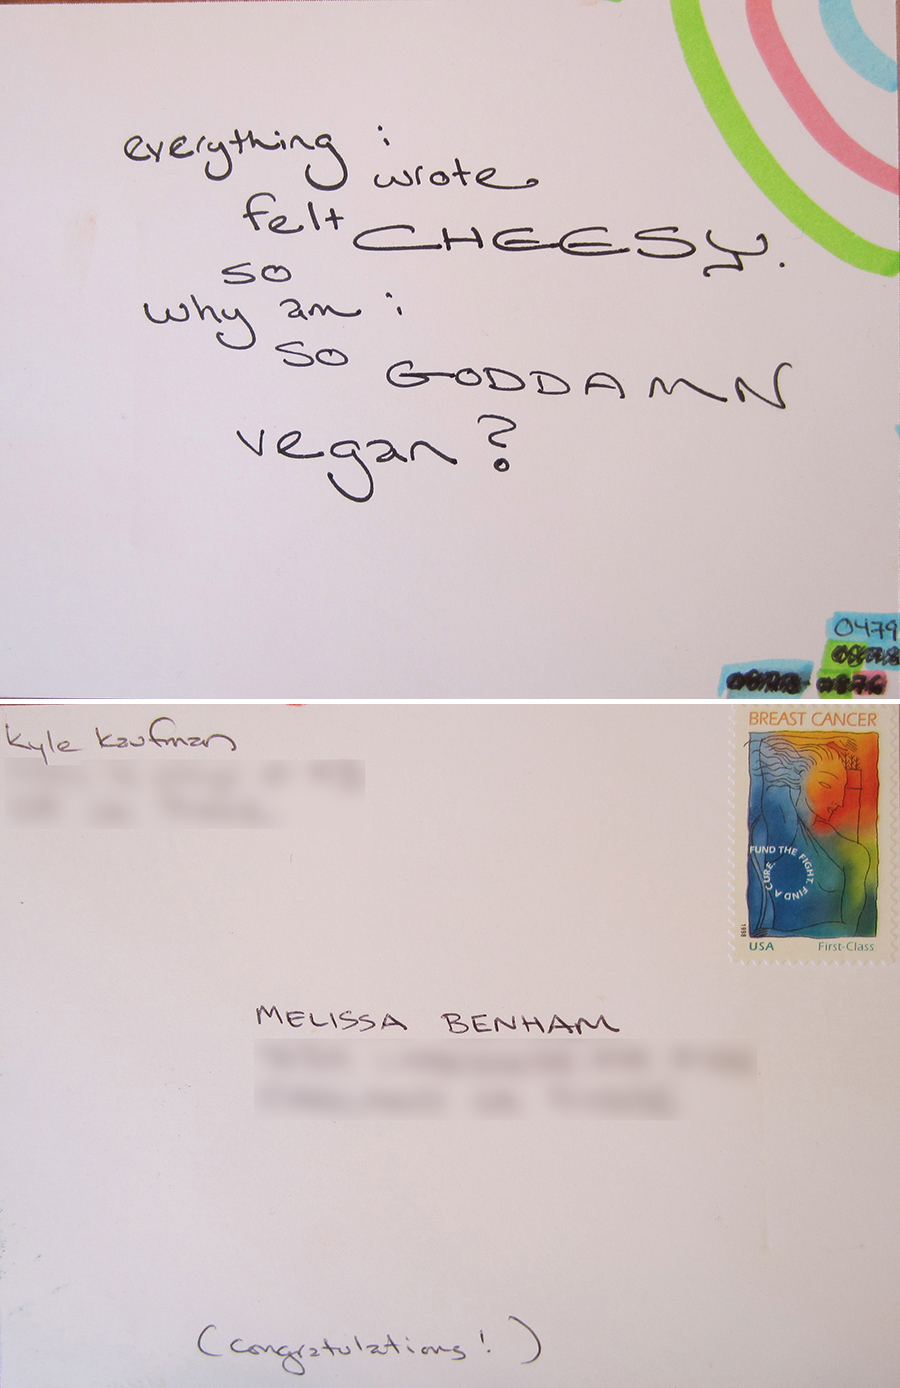 everything i
wrote
felt CHEESY.
so
why am i
so GODDAMN
vegan?
0479
Kyle Kaufman
BREAST CANCER
FUND THE FIGHT. FIND A CURE.
1998
USA First-Class
MELISSA BENHAM
(congratulations!)